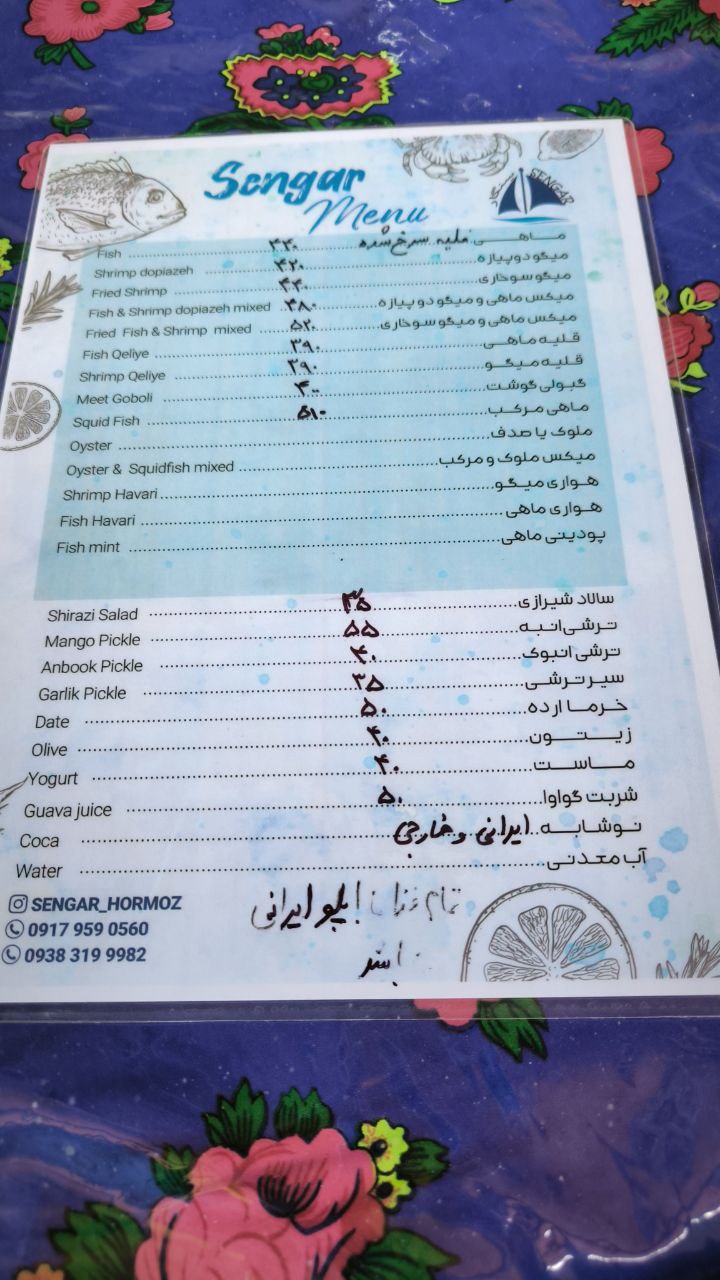 Sengar
Menu
SENGAR
Fish ۴۴۰ ماهی قلیه سرخ شده
Shrimp dopiazeh ۴۲۰ میگو دوپیازه
Fried Shrimp ۴۴۰ میگو سوخاری
Fish & Shrimp dopiazeh mixed ۴۸۰ میکس ماهی و میگو دوپیازه
Fried Fish & Shrimp mixed ۵۲۰ میکس ماهی و میگو سوخاری
Fish Qeliye ۳۹۰ قلیه ماهی
Shrimp Qeliye ۳۹۰ قلیه میگو
Meet Goboli ۴۰۰ گبولی گوشت
Squid Fish ۵۱۰ ماهی مرکب
Oyster ملوک یا صدف
Oyster & Squidfish mixed میکس ملوک و مرکب
Shrimp Havari هواری میگو
Fish Havari هواری ماهی
Fish mint پودینی ماهی
Shirazi Salad سالاد شیرازی
Mango Pickle ۵۵ ترشی انبه
Anbook Pickle ۴۰ ترشی انبوک
Garlik Pickle ۳۵ سیر ترشی
Date ۵۰ خرما ارده
Olive ۴۰ زیتون
Yogurt ۴۰ ماست
Guava juice ۵۰ شربت گواوا
Coca ایرانی و خارجی نوشابه
Water آب معدنی
SENGAR_HORMOZ
0917 959 0560
0938 319 9982
تمام ایرانی